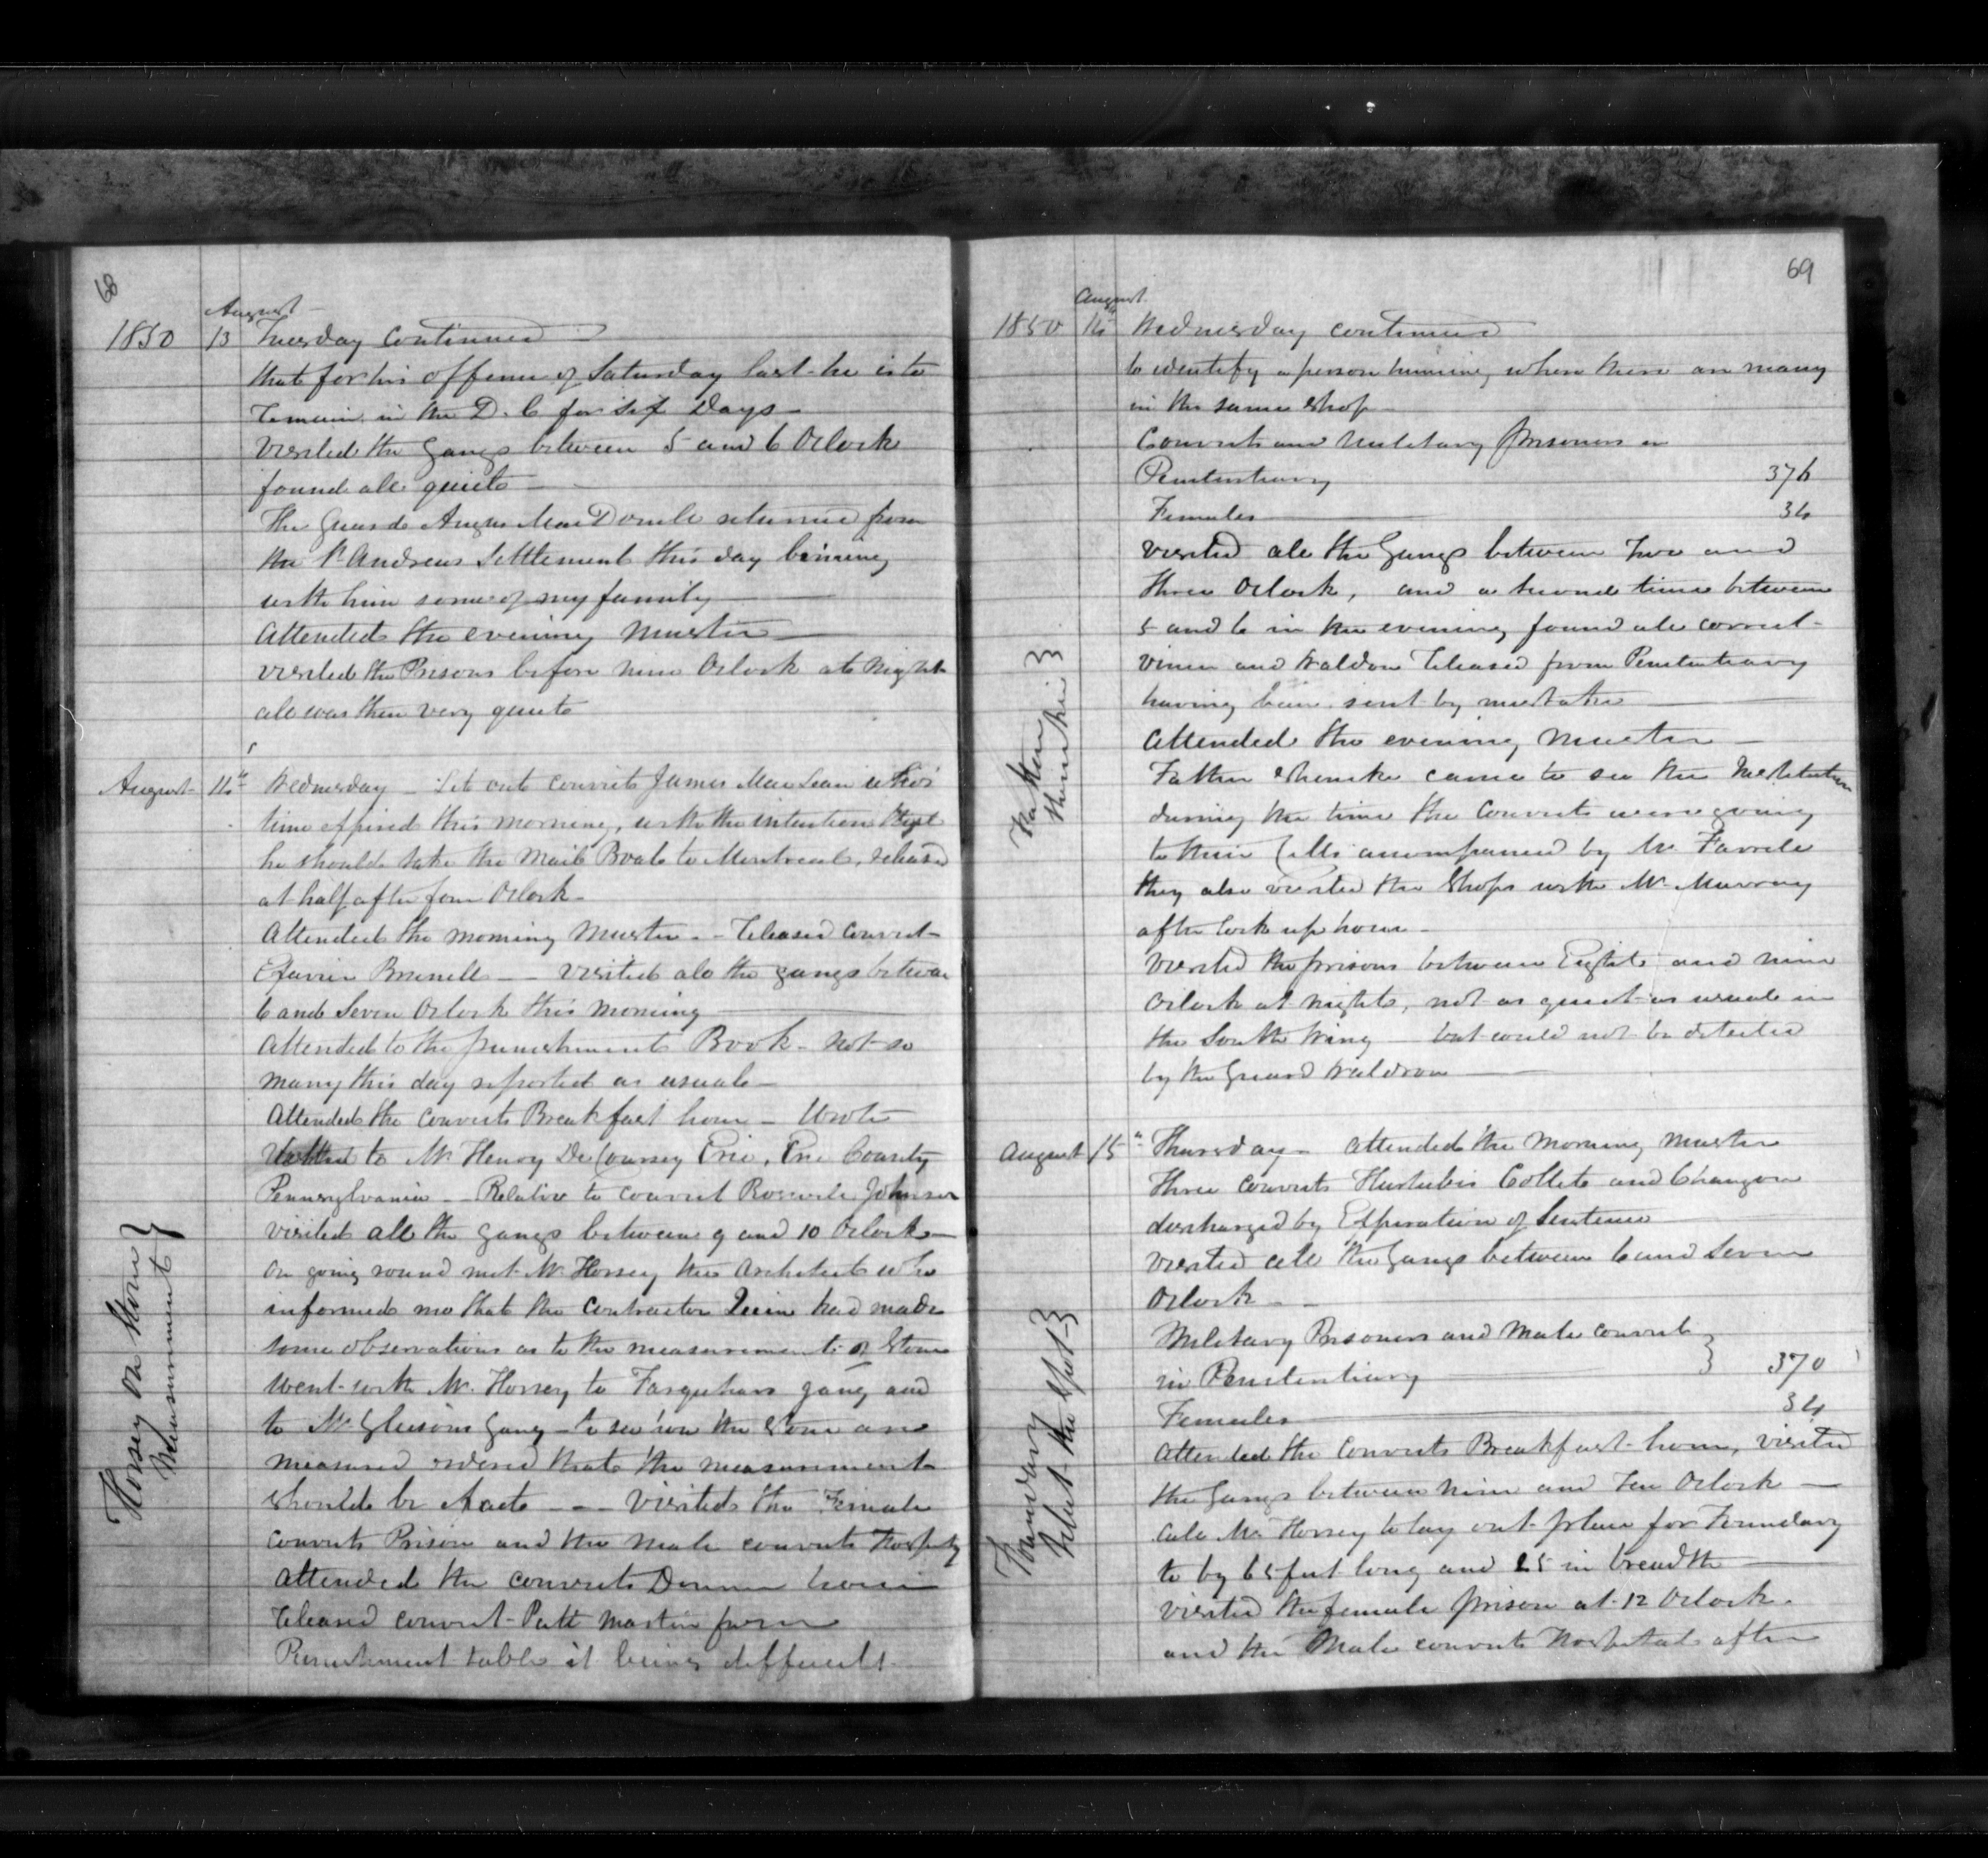 68
August
1850 13 Tuesday Continued
that for his offence of Saturday last he is to
remain in the D. C for six Days
Visited the Gangs between 5 and 6 Oclock
found all quiet
The Guard Angus MacDonell returned from
the St Andrews Settlement this day
with him some of my family
Attended the evening Muster
visited the Prisons before nine Oclock at Night
all was then very quiet
August 14th Wednesday Let out convict James MacLean who's
time expired this morning, with the intention that
he should take the Mail Boat to Montreal, released
at half after four Oclock
Attended the morning Muster - Released convict
Brunell visited all the gangs between
6 and Seven Oclock this morning
Attended to the punishment Book - not so
many this day reported as usual
Attended the Convicts Breakfast hour - Wrote
to Mr Henry DeCoursey Erie, Erie County
Pennsylvania - Relative to Convict Johnson
visited all the gangs between 9 and 10 Oclock
On going round met Mr Horsey the Architect who
informed me that the Contractor had made
some observations as to the measurement of Stone
Went with Mr. Horsey to Farquhars gang and
to Mr Gleesons Gang - to see how the Stone are
measured ordered that the measurement
should be - visited the Female
Convicts Prison and the Male convicts Hospital
Attended the convicts Dinner hour
Released convict Patt Martin from
Punishment table it being difficult
Horsey on Stone
Measurement
69
August
1850 14th Wednesday continued
to identify a person humming when there are many
in the same Shop
Convicts and Military Prisoners in
Penitentiary 376
Females 34
Visited all the Gangs between Two and
three Oclock, and a second time between
5 and 6 in the evening found all correct
and Waldron Released from Penitentiary
having been sent by mistake
Attended the evening Muster
Father came to see the Institution
during the time the Convicts were going
to their Cells accompanied by Mr
they also visited the Shops with Mr Murray
after lock up hour
Visited the prisons between Eight and nine
Oclock at night, not as quiet as usual in
the South Wing - but could not be detected
by the Guard Waldron
Father
August 15th Thursday - attended the Morning Muster
Three Convicts Hurtubis Collete and Changon
discharged by Expiration of Sentence
Visited all the Gangs between 6 and Seven
Oclock
Military Prisoners and Male Convicts
in Penitentiary 370
Females 34
Attended the Convicts Breakfast hour, visited
the Gangs between Nine and Ten Oclock
Mr Horsey to lay out place for Foundary
to by 65 feet long and 25 in breadth
Visited the female prison at 12 Oclock.
and the Male convicts Hospital after
Foundary
Select the Spot